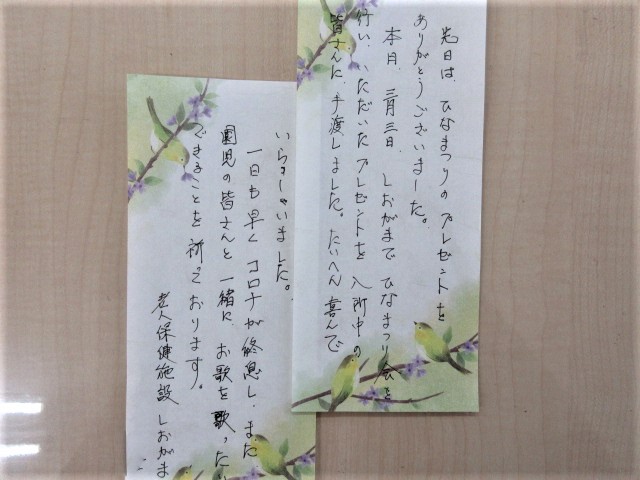 先日は、ひなまつりのプレゼントを
ありがとうございました。
本日、三月三日、しおがまで ひなまつり会を
行い、いただいたプレゼントを 入所中の
皆さんに、手渡しました。たいへん 喜んで
いらっしゃいました。
一日も早く コロナが終息し、また
園児の皆さんと 一緒に、お歌を 歌ったり
できることを 祈っております。
老人保健施設 しおがま